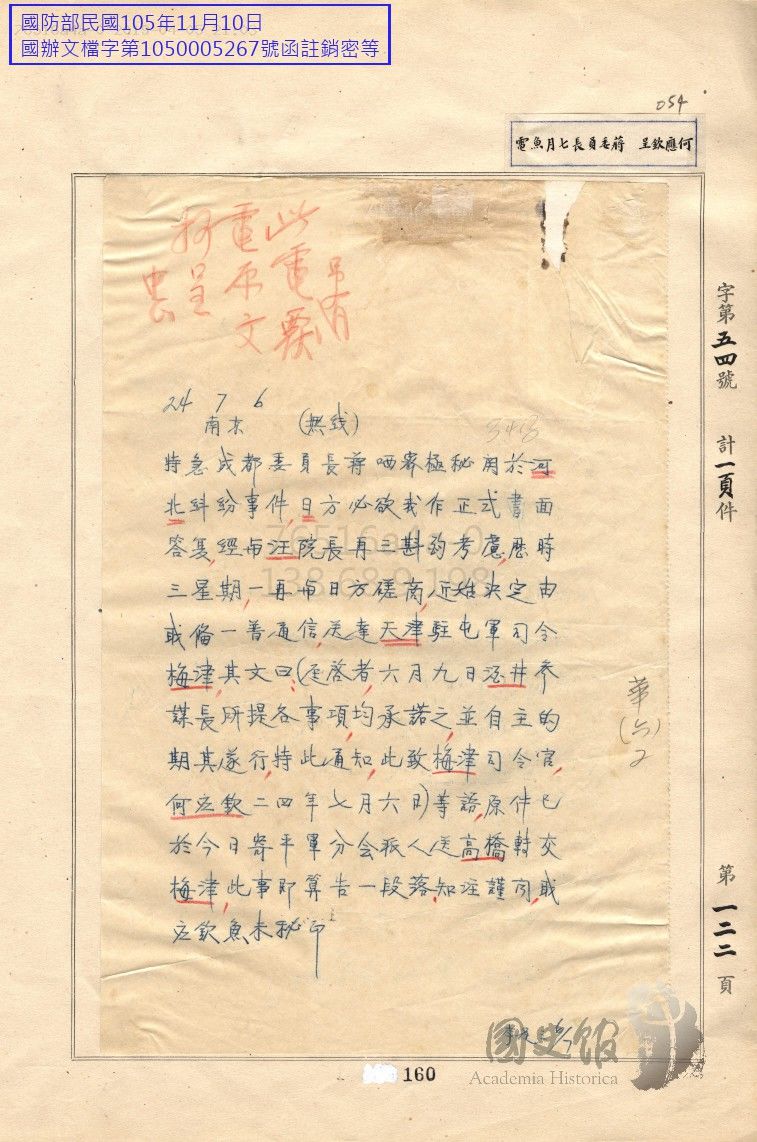 國防部民國105年11月10日
國辦文檔字第1050005267號函註銷密等
054
何應欽呈 蔣委員長七月魚電
此電要
電原文
抄呈
24 7 6
南京 (無线)
特急成都委員長蔣哂密極秘関於河
北糾紛事件,日方必欲我作正式書面
答复,經與汪院長再三斟酌考慮,歷時
三星期,一再與日方磋商,近始決定由
職偹一普通信,送達天津駐屯軍司令
梅津,其文曰:(逕啓者,六月九日酒井参
謀長所提各事項,均承諾之,並自主的
期其遂行,特此通知,此致梅津司令官,
何应欽二四年七月六日)等語,原件已
於今日寄平軍分会派人送高橋轉交
梅津,此事即算告一段落,知注謹聞,職
应欽魚未秘印
字第五四號 計一頁件 第一二二頁
華(六)2
國史館
Academia Historica
160